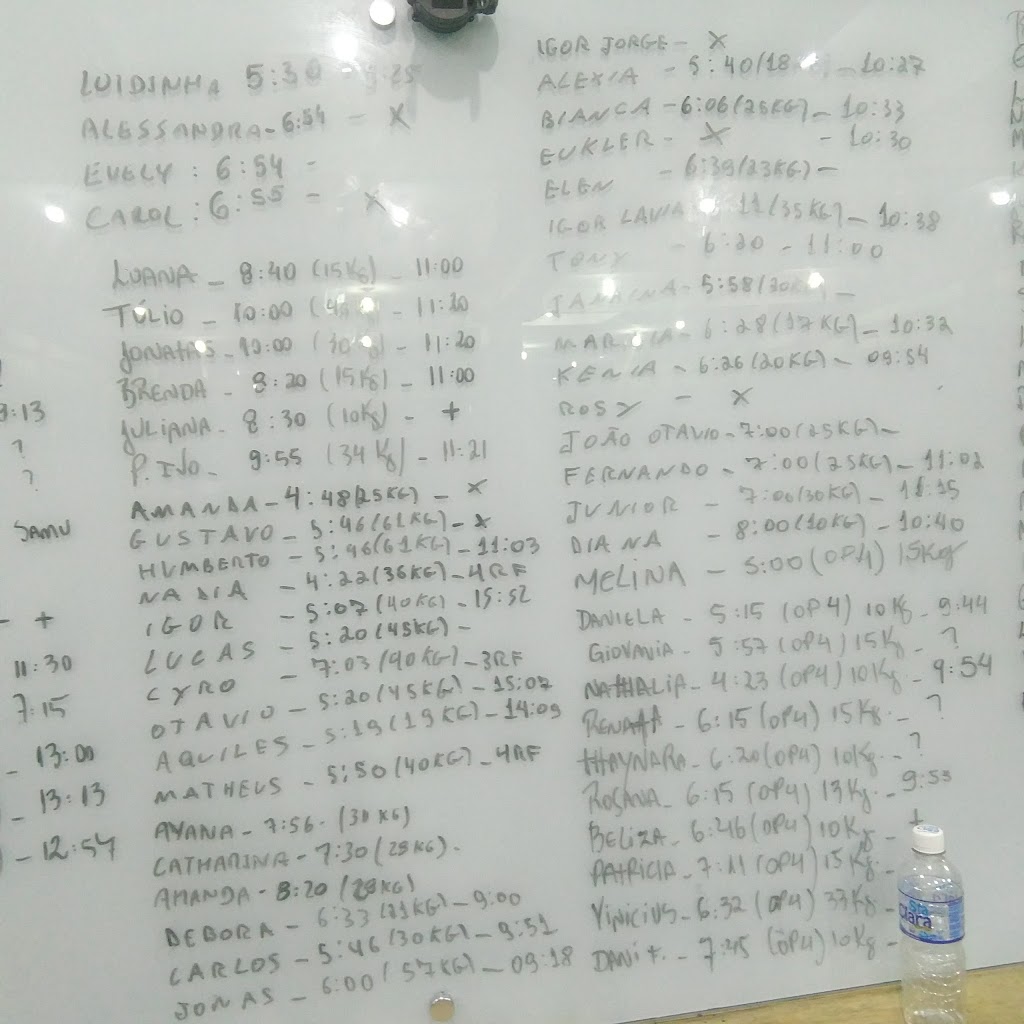 LUIDINHA 5:30 - 9:25
ALESSANDRA - 6:54 - X
EVELY : 6:54 -
CAROL : 6:55 - X
LUANA - 8:40 (15Kg) - 11:00
TÚLIO - 10:00 - 11:20
JONATAS - 10:00 (30Kg) - 11:20
BRENDA - 8:20 (15Kg) - 11:00
JULIANA - 8:30 (10Kg) - +
P. IVO - 9:55 (34 Kg) - 11:21
AMANDA - 4:48 (25KG) - X
GUSTAVO - 5:46 (61KG) - X
HUMBERTO - 5:46 (61KG) - 11:03
NADIA - 4:22 (36KG) - 4RF
IGOR - 5:07 (40KG) - 15:52
LUCAS - 5:20 (45KG) -
CYRO - 7:03 (90KG) - 3RF
OTAVIO - 5:20 (45KG) - 15:07
AQUILES - 5:19 (19KG) - 14:09
MATHEUS - 5:50 (40KG) - 4RF
AYANA - 7:56 - (30KG)
CATHARINA - 7:30 (28KG) -
AMANDA - 8:20 (28KG)
DEBORA - 6:33 (21KG) - 9:00
CARLOS - 5:46 (30KG) - 9:51
JONAS - 6:00 (57KG) - 09:18
IGOR JORGE - X
ALEXIA - 5:40 (18 - 10:27
BIANCA - 6:06 (25KG) - 10:33
EUKLER - X - 10:30
ELEN - 6:39 (23KG) -
IGOR 11 (35KG) - 10:38
TONY - 6:20 - 11:00
JANAINA - 5:58 (20KG) -
MARCIA - 6:28 (17KG) - 10:32
KENIA - 6:26 (20KG) - 09:54
ROSY - X
JOÃO OTAVIO - 7:00 (25KG) -
FERNANDO - 7:00 (25KG) - 11:02
JUNIOR - 7:00 (30KG) - 11:15
DIANA - 8:00 (10KG) - 10:40
MELINA - 5:00 (OP4) 15Kg
DANIELA - 5:15 (OP4) 10Kg - 9:44
GIOVANIA - 5:57 (OP4) 15Kg - ?
NATHALIA - 4:23 (OP4) 10Kg - 9:54
RENATA - 6:15 (OP4) 15Kg - ?
THAYNARA - 6:20 (OP4) 10Kg - ?
ROSANA - 6:15 (OP4) 13Kg - 9:53
BELIZA - 6:46 (OP4) 10Kg - +
PATRICIA - 7:11 (OP4) 15Kg -
VINICIUS - 6:32 (OP4) 33Kg -
DANI F. - 7:45 (OP4) 10Kg -
9:13
?
?
SAMU
- +
11:30
7:15
- 13:00
- 13:13
- 12:54
Sta
Clara